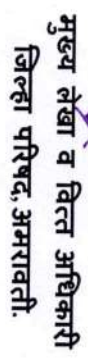 मुख्य लेखा व वित्त अधिकारी
जिल्हा परिषद,अमरावती.